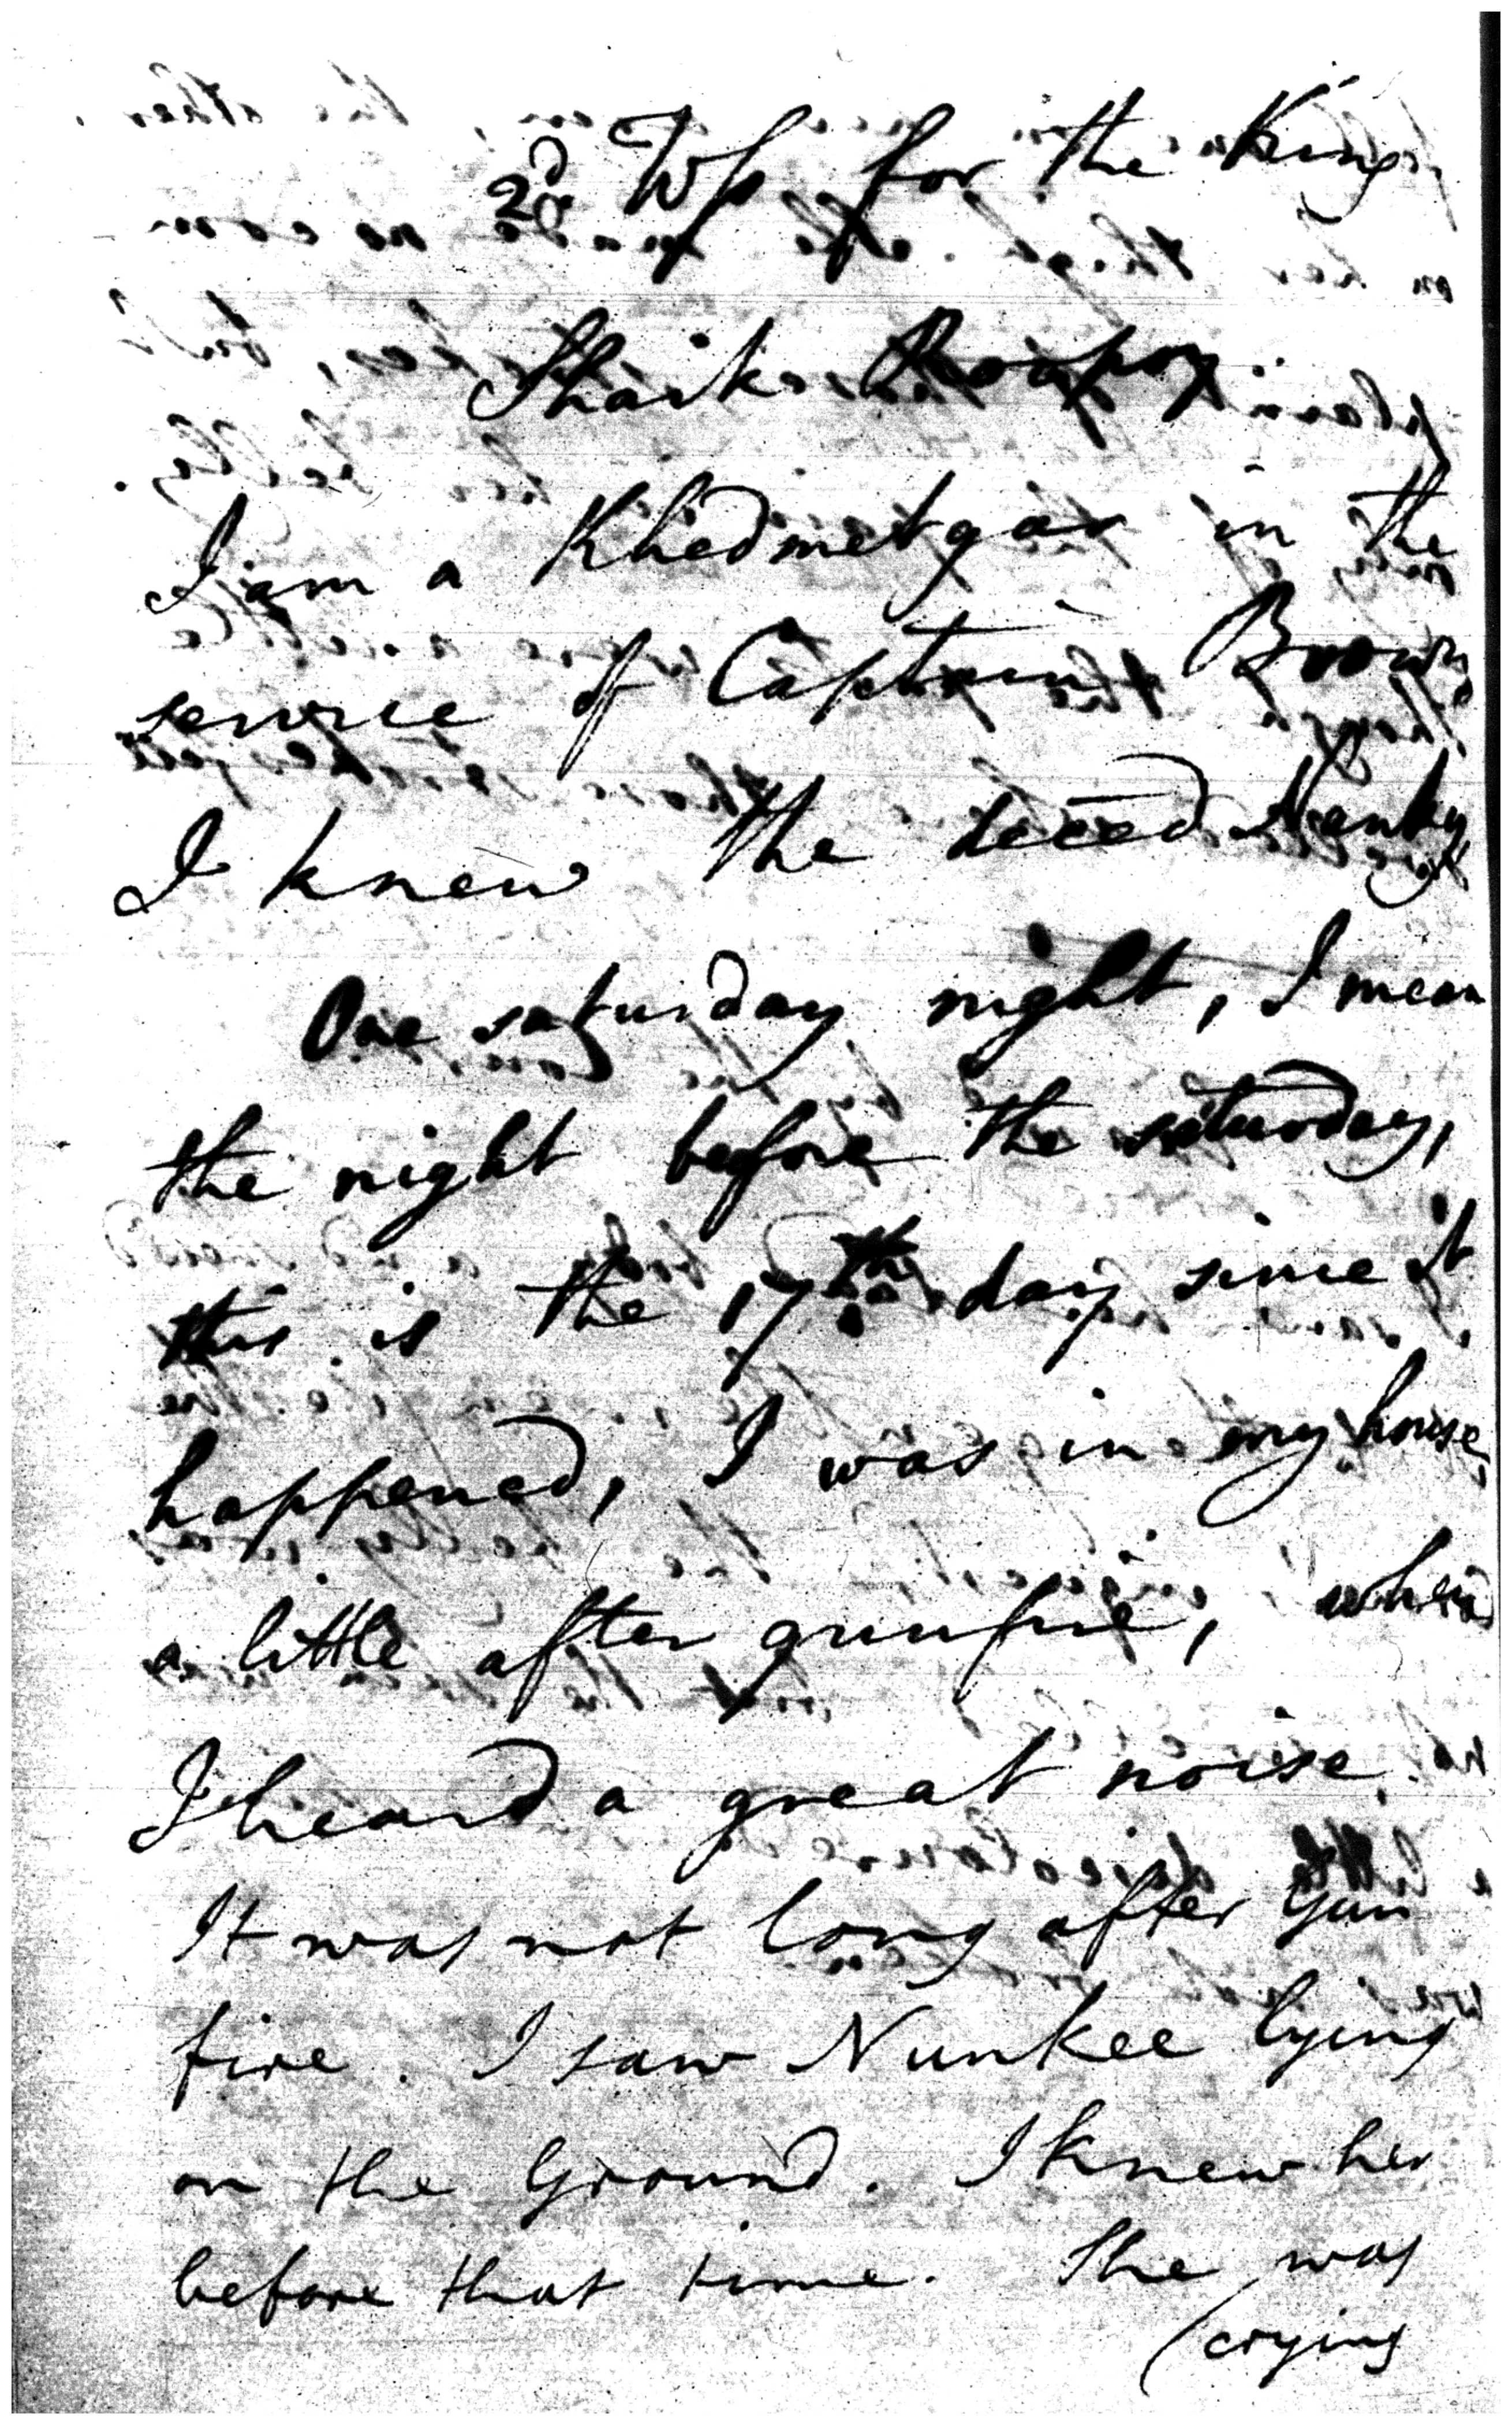 2d Ws for the King
Shaik
I am a Khedmetgar in the
service of Captain Brown
I knew the deced Nunky
One saturday night, I mean
the night before the saturday,
this is the 17th day since it
happened, I was in my house,
a little after gunfire, when
I heard a great noise.
It was not long after gun
fire. I saw Nunkee lying
on the Ground. I knew her
before that time. She was
(crying